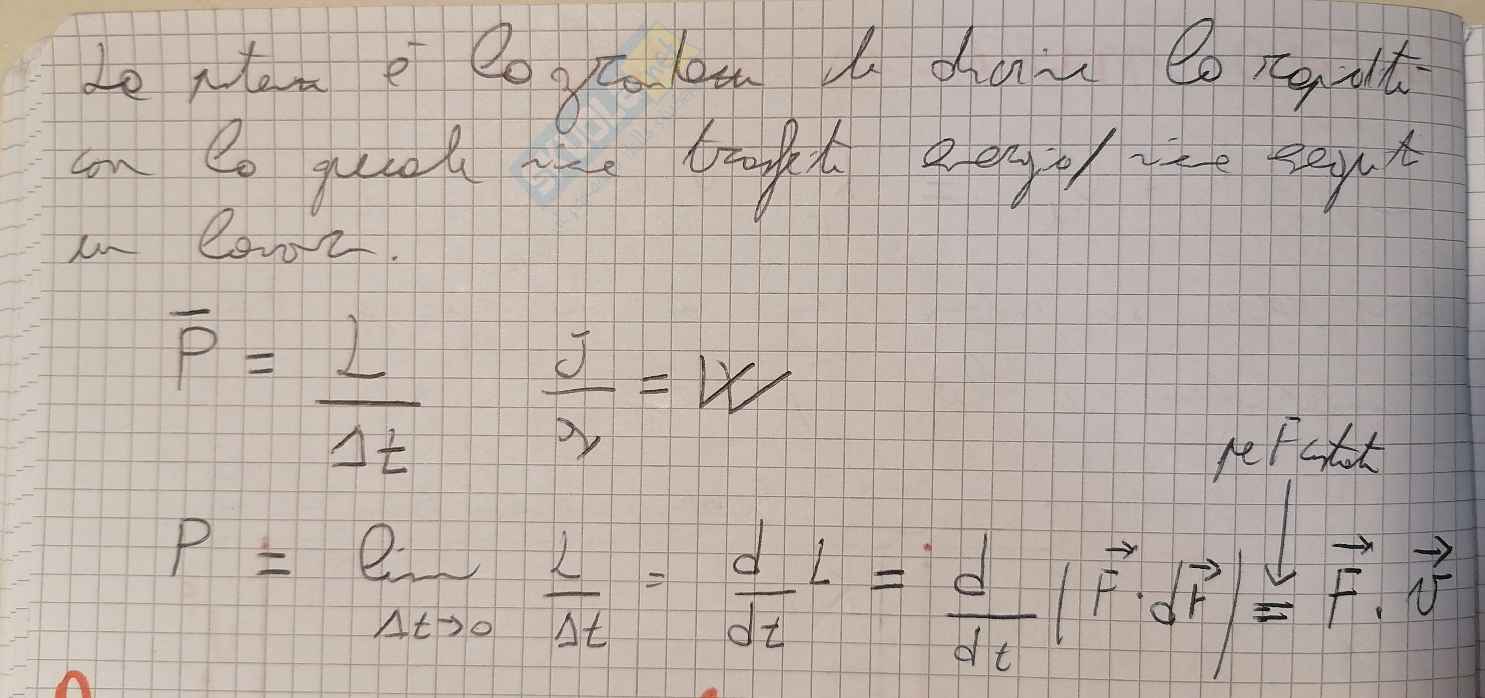 La potenza è la grandezza che descrive la rapidità
con la quale viene trasferita energia / viene eseguito
un lavoro.
P̄ = L / Δt    J / s = W
per F costante
P = lim Δt→0 L / Δt = d/dt L = d/dt (F⃗ · dr⃗) = F⃗ · v⃗